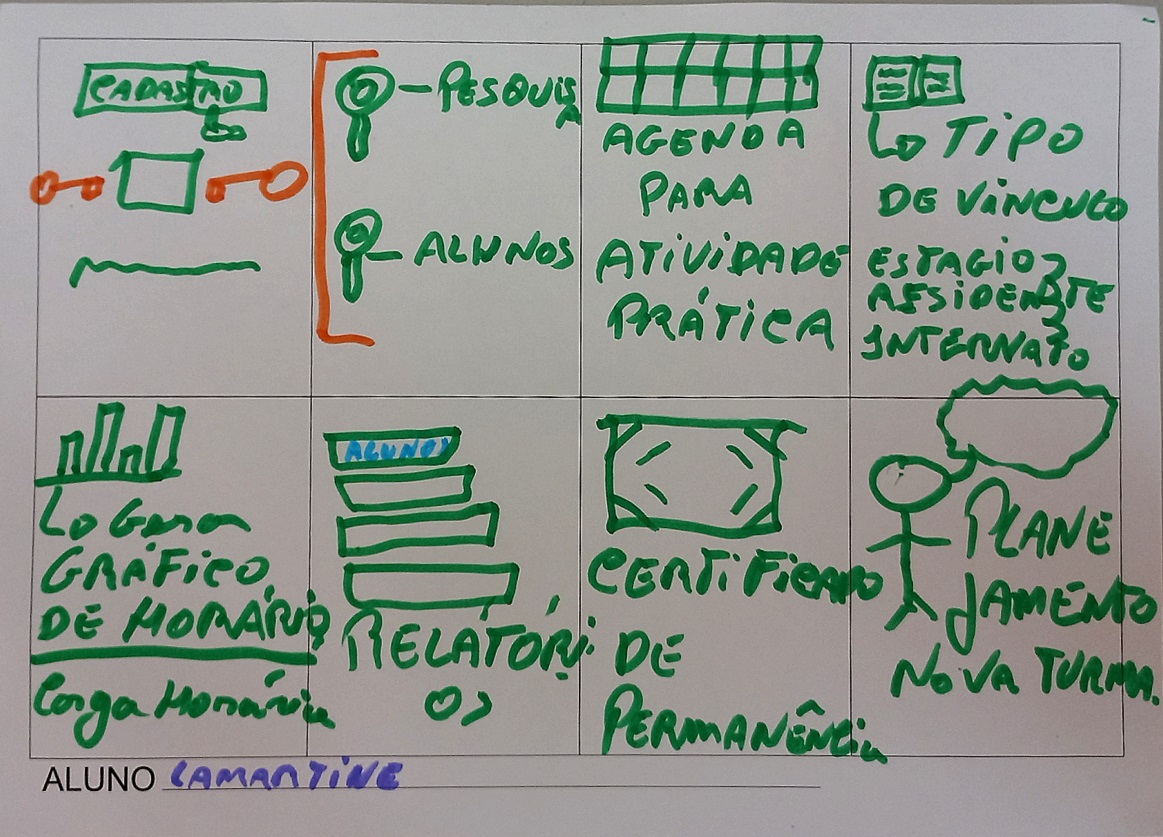 CADASTRO
PESQUISA
ALUNOS
AGENDA
PARA
ATIVIDADE
PRÁTICA
TIPO
DE VÍNCULO
ESTAGIO
RESIDENTE
INTERNATO
GERA
GRÁFICO
DE HORÁRIO
Carga Horária
ALUNOS
RELATÓRI
OS
CERTIFICADO
DE
PERMANÊNCIA
PLANE
JAMENTO
NOVA TURMA.
ALUNO LAMARTINE